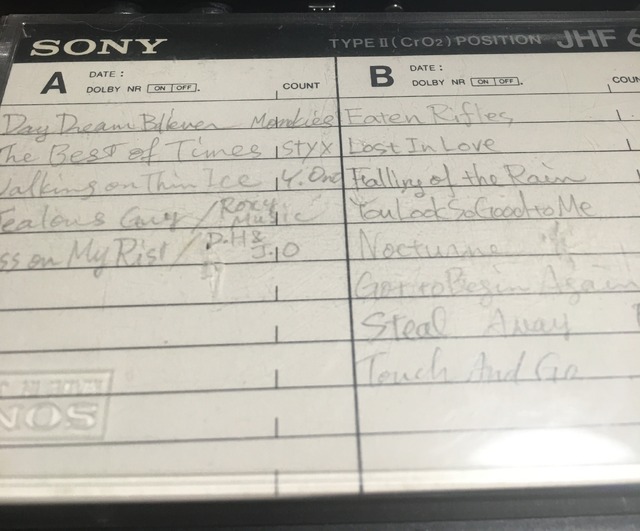 SONY TYPE II (CrO2) POSITION JHF 6
A DATE :
DOLBY NR ON OFF . COUNT
Day Dream Blkever Monkiee
The Best of Times STYX
Walking on Thin Ice Y. Ono
Jealous Guy / Roxy Music
ss on My Rist / D.H & J.O
SONY
B DATE :
DOLBY NR ON OFF . COUN
Eaten Rifles
Lost In Love
Falling of the Rain
You Look So Good to Me
Nocturne
Got to Begin Again
Steal Away
Touch And Go